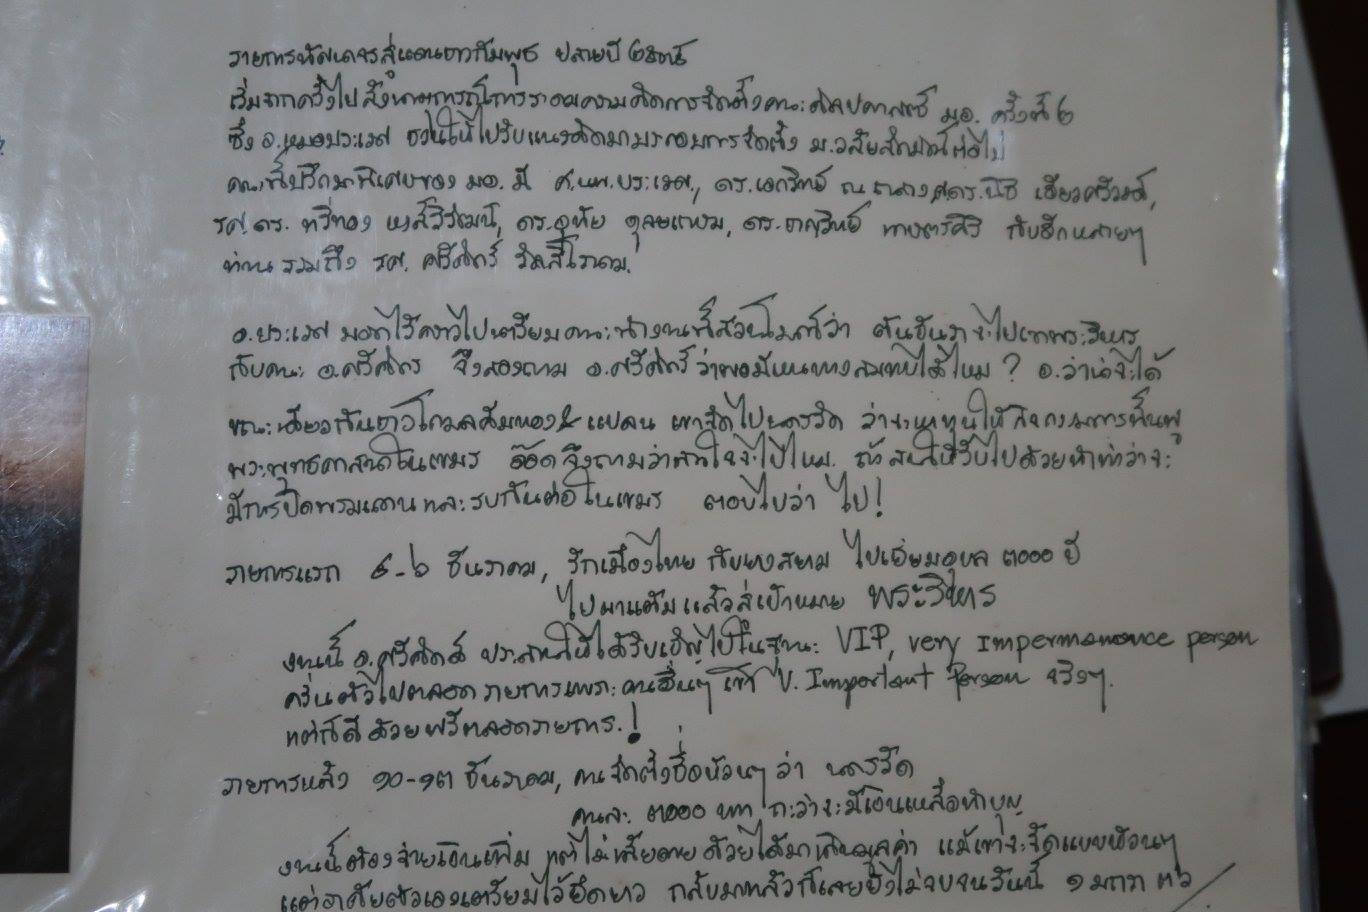 รายการทัศนาจรสู่แดนขาวกัมพุช ปลายปี ๒๕๓๕
เริ่มจากครั้งไปสังเกตการณ์การระดมความคิดการจัดตั้งคณะศิลปศาสตร์ มอ. ครั้งที่ ๒
ซึ่ง อ.หมอประเวศ ชวนให้ไปรับแนวคิดมาประกอบการจัดตั้ง ม.วลัยลักษณ์ต่อไป
คณะที่ปรึกษาพิเศษของ มอ. มี ศ.นพ.ประเวศ, ดร.เอกวิทย์ ณ ถลาง, ศ.ดร.นิธิ เอียวศรีวงศ์,
รศ.ดร. ฉวีทอง หงส์วิวัฒน์, ดร.อุทัย ดุลยเกษม, ดร.ชาญวิทย์ เกษตรศิริ กับอีกหลายๆ
ท่าน รวมถึง รศ. ศรีศักร วัลลิโภดม.
อ.ประเวศ บอกไว้คราวไปเตรียมคณะทำงานที่สวนโมกข์ว่า ต้นธันวาจะไปเขาพระวิหาร
กับคณะ อ.ศรีศักร จึงลองถาม อ.ศรีศักร ว่าพอมีหนทางสมทบได้ไหม? อ.ว่าน่าจะได้
ขณะเดียวกันข่าวโกมลคีมทอง & แปลน เขาจัดไปนครวัด ว่าจะหาทุนให้สังฆะในการฟื้นฟู
พระพุทธศาสนาในเขมร อ๊อดจึงถามว่าสนใจจะไปไหม. ถ้าสนให้รีบไปด้วยทำท่าว่าจะ
มีการปิดพรมแดนและรบกันต่อในเขมร ตอบไปว่า ไป!
รายการแรก ๕-๖ ธันวาคม, รักเมืองไทย กับทางสยาม ไปเยี่ยมอุบล ๓๐๐๐ ปี
ไปผาแต้ม แล้วสู่เป้าหมาย พระวิหาร
งานนี้ อ.ศรีศักร ประสานให้ได้รับเชิญไปในฐานะ VIP, very Impermanance person
ครั่นตัวไปตลอดรายการเพราะคนอื่นๆ เขา V. Important Person จริงๆ.
แต่ก็ดีด้วยฟรีตลอดรายการ.!
รายการหลัง ๑๐-๑๓ ธันวาคม, คนจัดตั้งชื่อห้วนๆ ว่า นครวัด
คนละ ๓๐๐๐ บาท กะว่าจะมีเงินเหลือทำบุญ
งานนี้ต้องจ่ายเงินเพิ่ม แต่ไม่เสียดาย ด้วยได้มาเกินมูลค่า แม้เขาจะจัดแบบห้วนๆ
แต่อาศัยตัวเองเตรียมไว้ยืดยาว กลับมาแล้วก็เลยยังไม่จบจนวันนี้ ๑ มกรา ๓๖